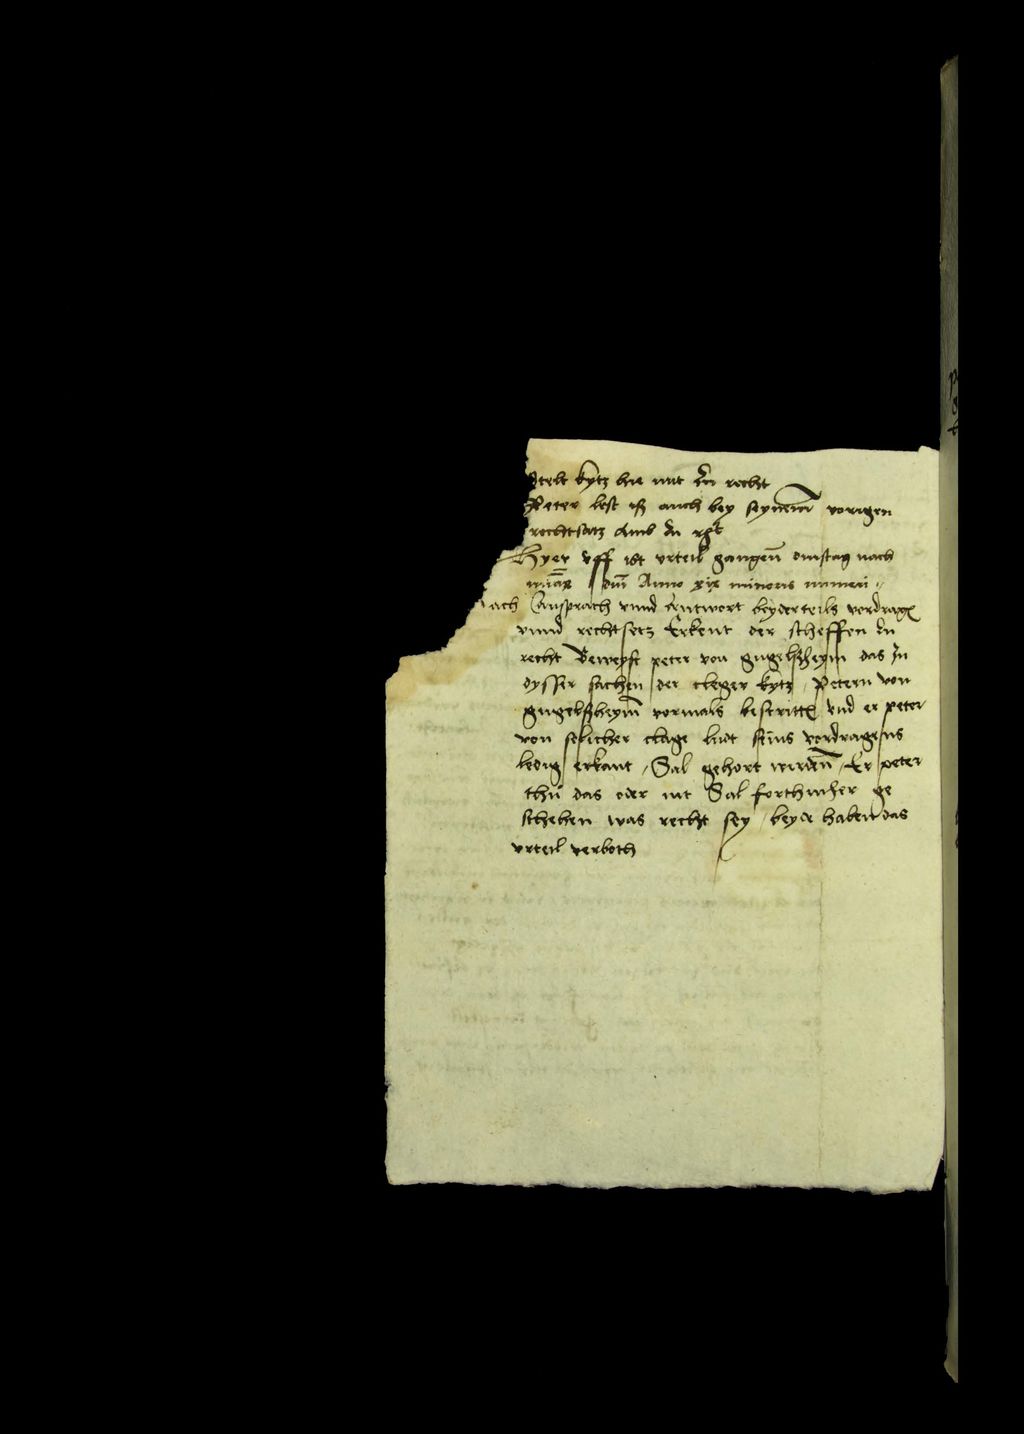 Stelt kytz hie mit zu recht
Peter lest iß auch bey seynem vorigen
rechtsatz zu
Hyer uff ist urteil gangen dinstag nach
dni Anno xix minoris numeri
nach Ansprach unnd Antwort beyderteils vordrage
unnd rechtsetz Erkent der scheffen zu
recht Beweyst peter von gugelßheym das In
dysser sachen der cleger kytz / Petern von
gugelßheym vormals bestritte und er peter
von solicher clage ludt seins vordragens
ledig erkant / Sal gehort wirden / Er peter
thu das oder nit Sal forthinher ge
schehen was recht sey / beyde haben das
urteil verboth